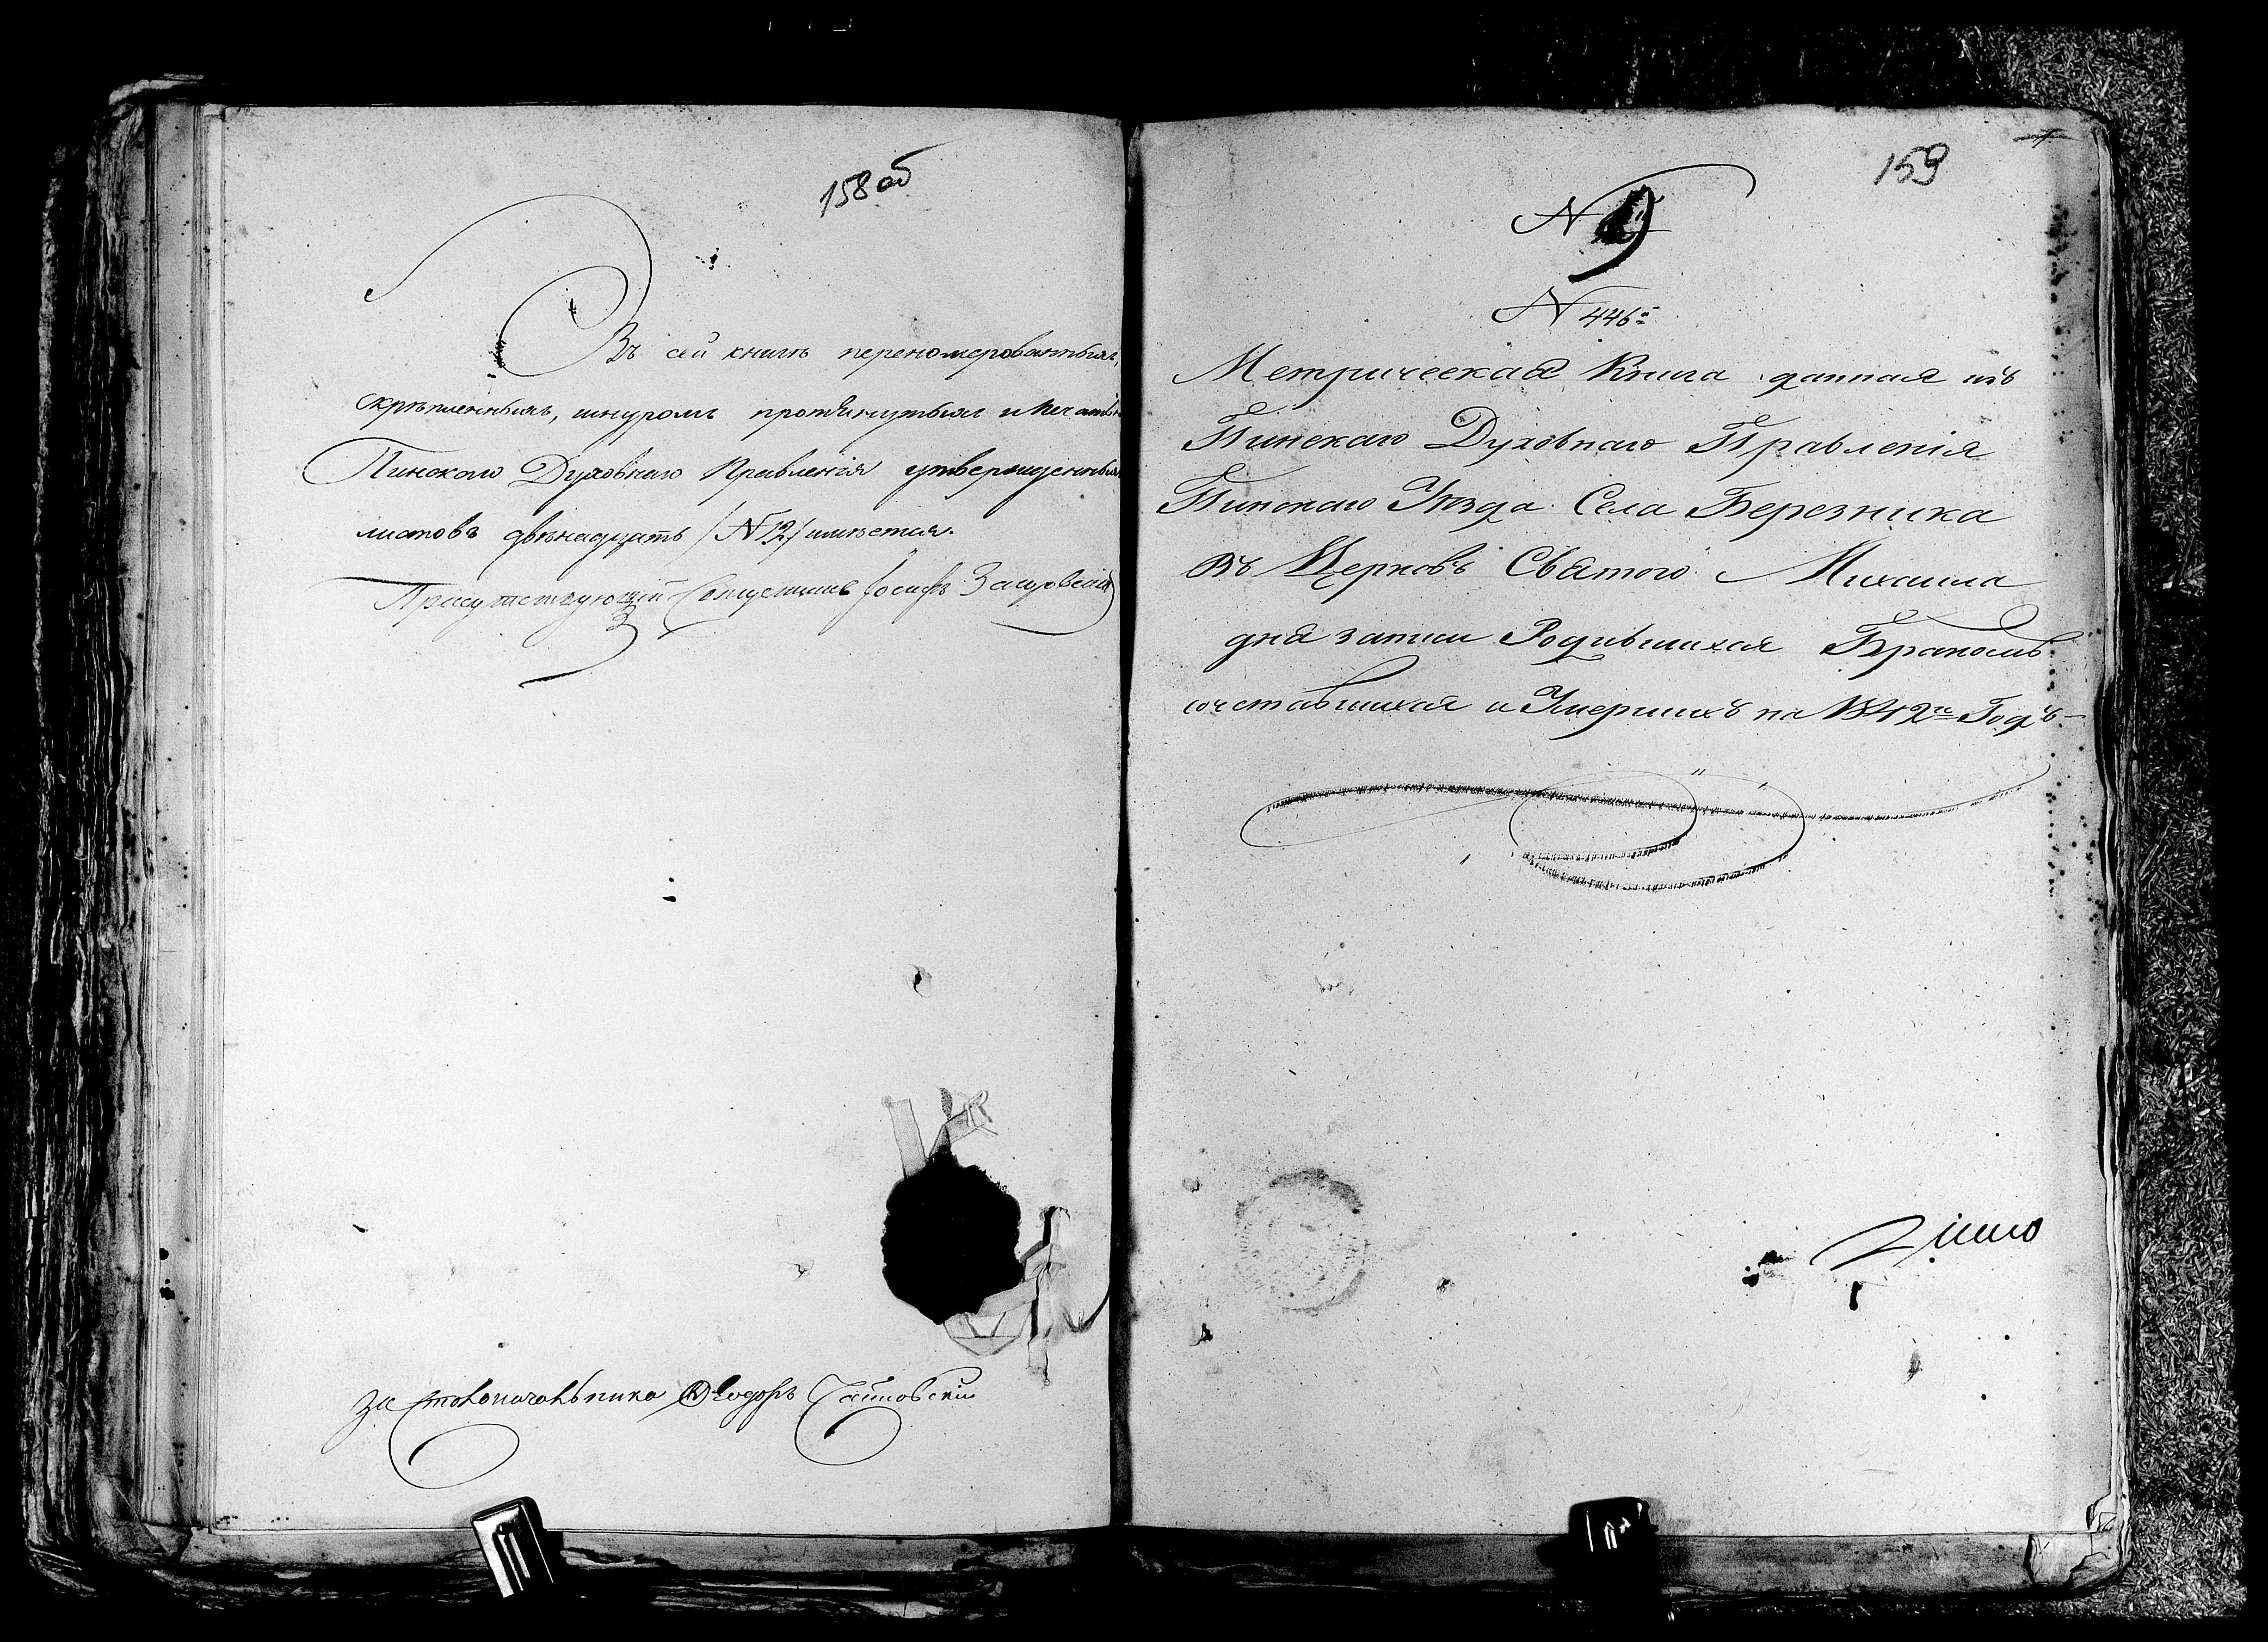 158 об
Въ сей книгѣ переномерованныхъ,
скрѣпленныхъ, шнуромъ протянутыхъ и печатью
Пинскаго Духовнаго Правленія утвержденныхъ
листовъ двѣнадцать /N 12/ имѣется.
Присутствующій Іосифъ
За столоначальника Ѳеодоръ
159
N 9
N 446й
Метрическая Книга данная изъ
Пинскаго Духовнаго Правленія
Пинскаго Уѣзда Села Березника
въ Церковь Святого Михаила
для записи Родившихся Бракомъ
сочетавшихся и Умершихъ на 1842й Годъ.